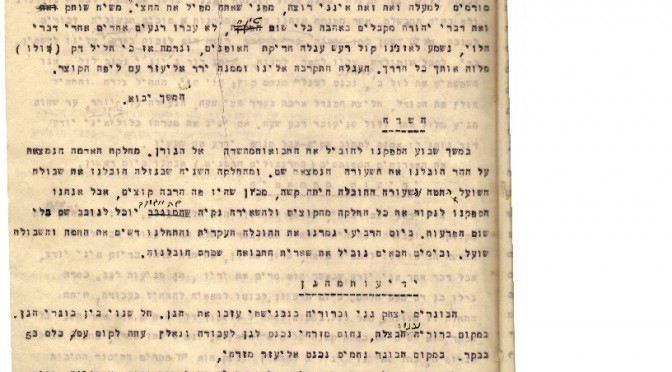 מורמים למעלה ואת זאת אינני רוצה, מפני שאתה תפיל את החצי. משיח שותק
ואת דברי יהודה מקבלים באהבה בלי שום לא עברו רגעים אחדים אחרי דברי
הלוי, נשמע לאזנינו קול רעש עגלה חריקת האופנים, ונדמה אז כי חליל דק (סולו)
מלוה אותך כל הדרך. העגלה התקרבה אלינו וממנה ירד אליעזר עם ליפה הקוצר.
המשך יבוא.
השדה
במשך שבוע הספקנו להוביל את התבואותמהשדה אל הגורן. מחלקת האדמה הנמצאת
על ההר הובלנו את השעורה הנמצאת שם. ומהחלקה השניה שבגזלה הובלנו את שבולת
השועל החטה ושעורה ההובלה היתה קשה, מכוון שהיו פה הרבה קוצים, אבל אנחנו
הספקנו לנקות את כל החלקה מהקוצים ולהשאירה נקיה יוכל לנובב שם בלי
שום הפרעות. ביום הרביעי גמרנו את ההובלה העקרית והתחלנו דשים את החטה והשבולת
שועל. ובימים הבאים נוביל את שארית התבואה שטרם הובלנוה.
ידיעותמהגן
הבוגרים יצחק גנני וברוריה בנבנישתי עזבו את הגן. חל שנוי בין בוגרי הגן.
במקום ברוריה הבצלה, נחום מזרחי נכנס לגן לעבודה ונאלץ עתה לקום עם כלם ב5
בבקר. במקום הבוגר נחמים נכנס אליעזר מזרחי,